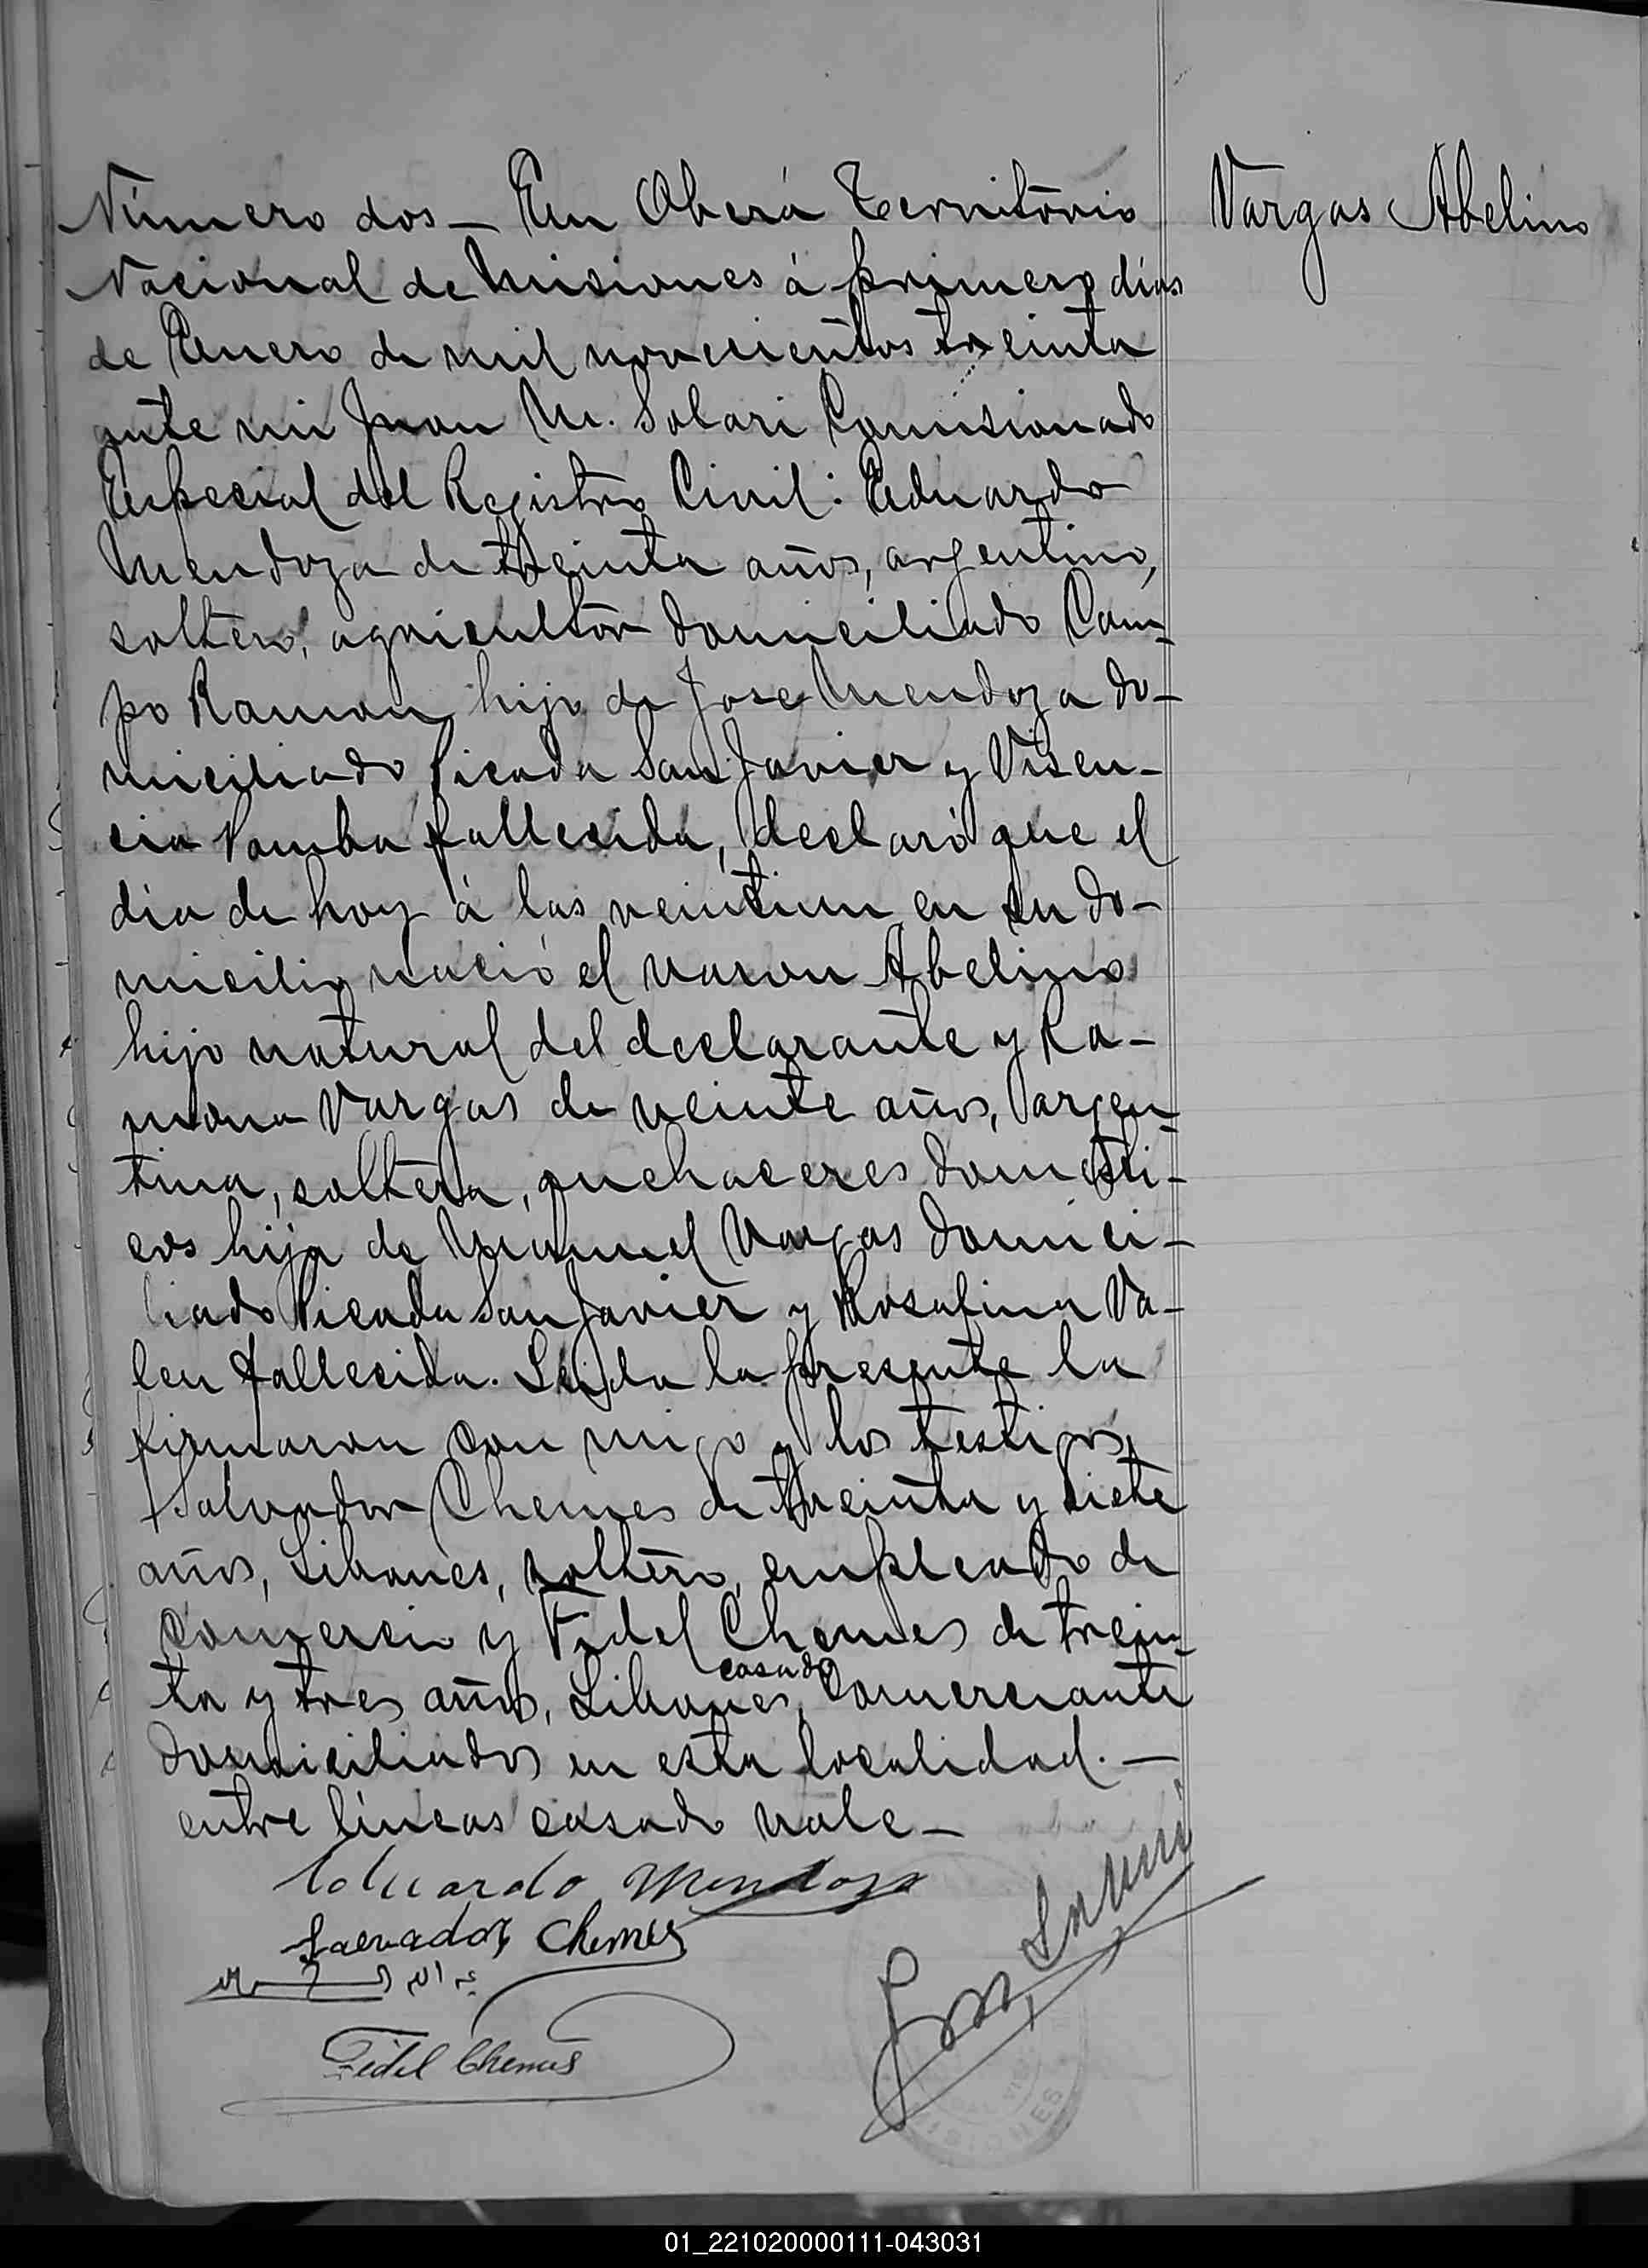 Número dos — En Oberá Territorio
Vargas Abelino
Nacional de Misiones á primero dias
de Enero de mil novecientos treinta
ante mi Juan M. Solari Comisionado
Especial del Registro Civil: Eduardo
Mendoza de treinta años, argentino,
soltero, agricultor domiciliado Cam-
po Ramon, hijo de Jose Mendoza do-
miciliado Picada San Javier y Visen-
cia fallecida, declaró que el
dia de hoy á las veintiun en su do-
micilio nació el varon Abelino
hijo natural del declarante y Ra-
mona Vargas de veinte años, argen-
tina, soltera, quehaceres domesti-
cos hija de Manuel Vargas domici-
liado Picada San Javier y Rosafina Va-
len fallecida. Leida la presente la
firmaron con migo y los testigos,
Salvador Chemes de treinta y siete
años, Libanes, soltero, empleado de
comercio y Fidel Chemes de trein-
casado
ta y tres años, Libanes, comerciante
domiciliados en esta localidad. —
entre líneas casado vale —
Eduardo Mendoza
Salvador Chemes
Fidel Chemes
MISIONES
01_221020000111-043031